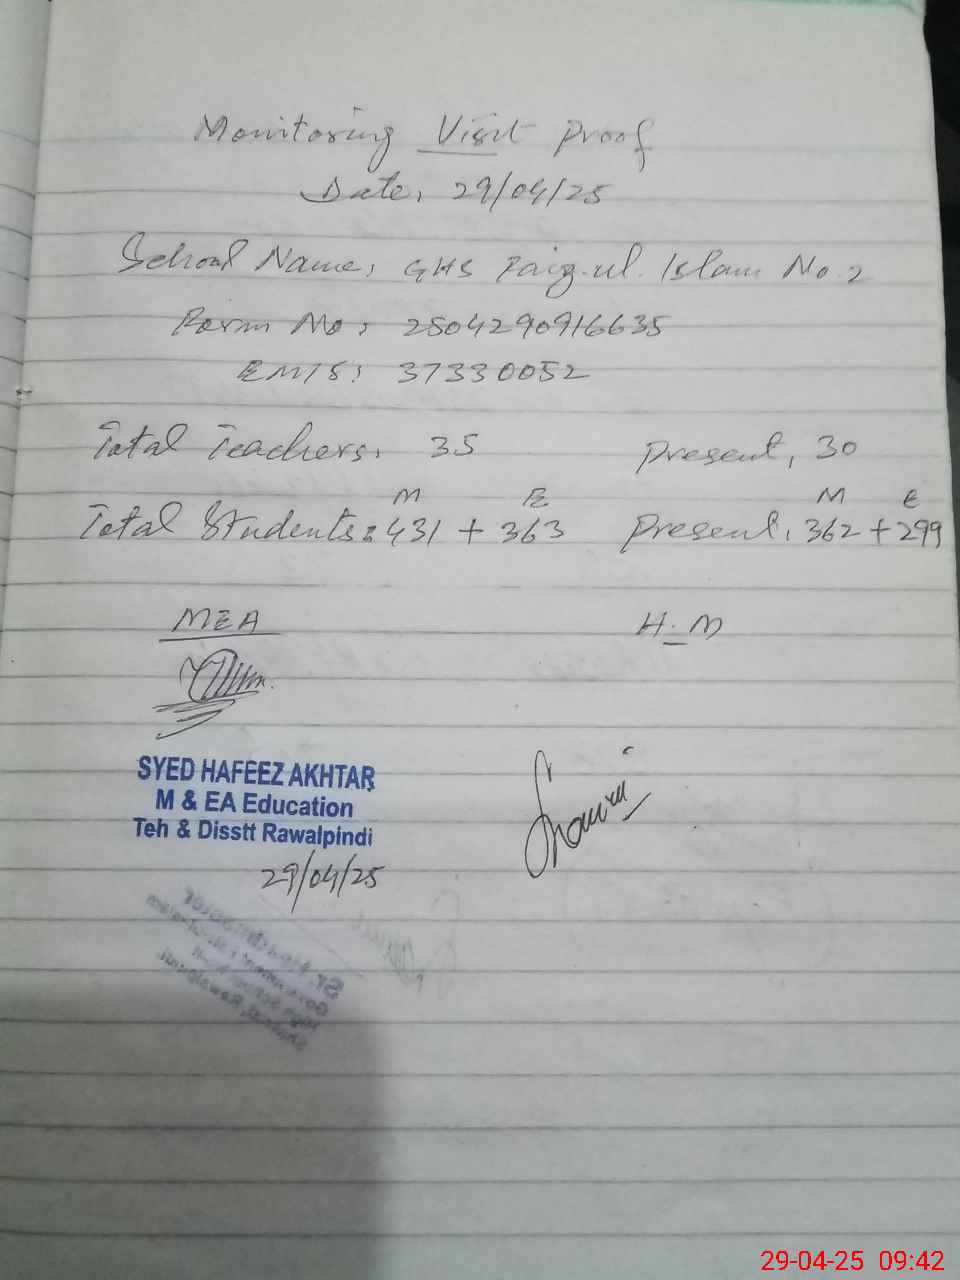 Monitoring Visit Proof
Date: 29/04/25
School Name: GHS Faiz-ul-Islam No. 2
Form No: 2504290916635
EMIS: 37330052
Total Teachers: 35 Present: 30
M E M E
Total Students: 431 + 363 Present: 362 + 299
MEA H.M
SYED HAFEEZ AKHTAR
M & EA Education
Teh & Disstt Rawalpindi
29/04/25
29-04-25 09:42